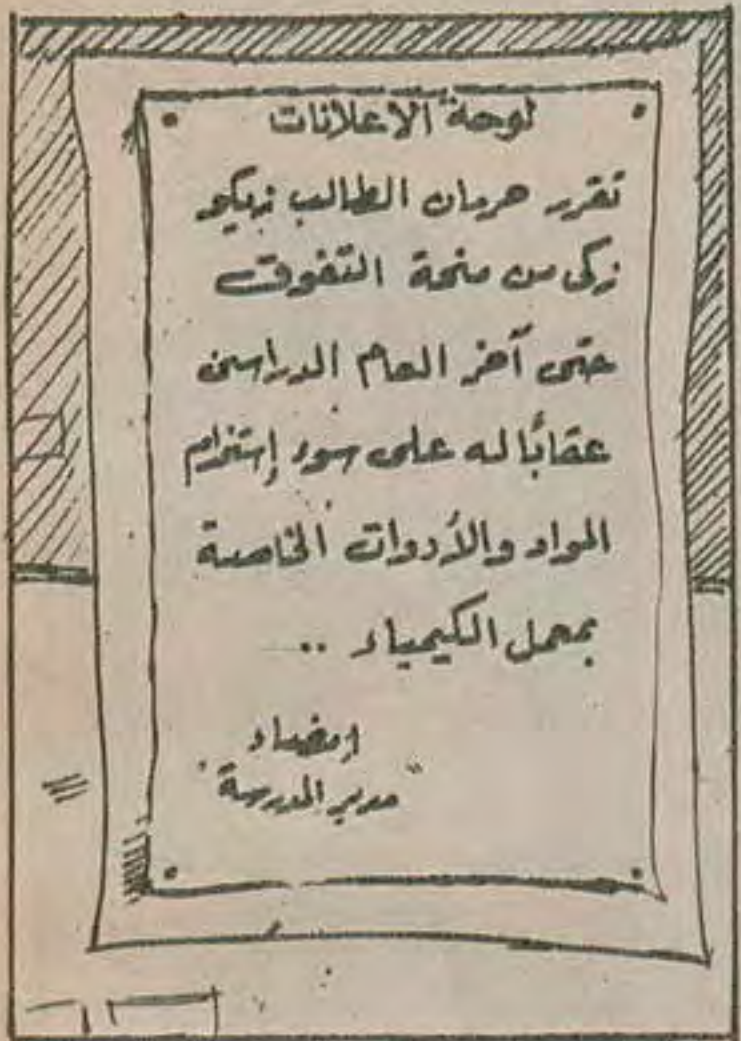 لوحة الاعلانات
تقرر حرمان الطالب زيكو
زكى من منحة التفوق
حتى آخر العام الدراسى
عقابًا له على سوء إستخدام
المواد والأدوات الخاصة
بمعمل الكيمياء ..
إمضاء
"مدير المدرسة"